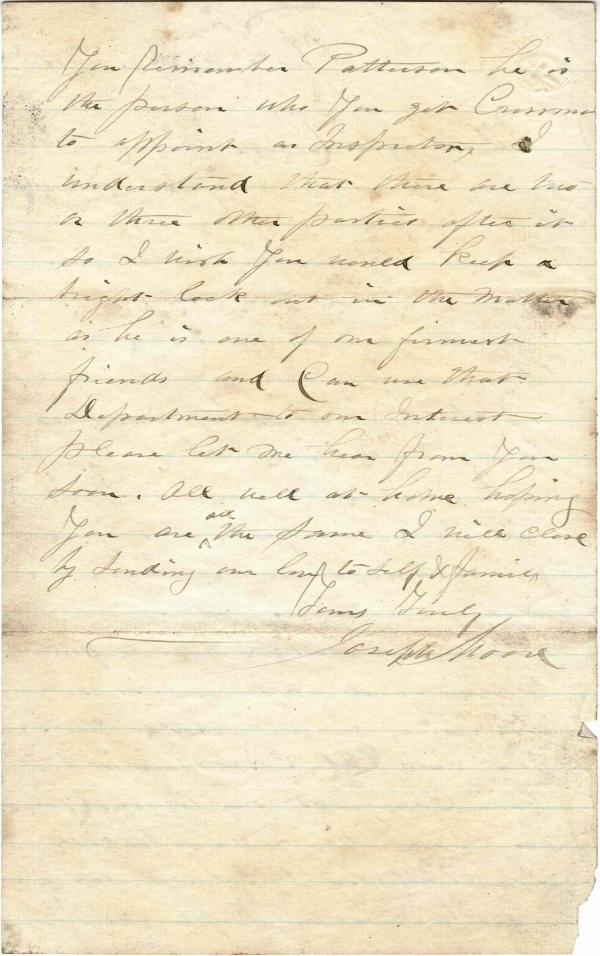 You remember Patterson he is
the person who You got
to appoint as Inspector, I
understand that there are two
or three other parties after it
so I wish You would keep a
bright look out in the matter
as he is one of our firmest
friends and Can use that
Department to our Interest
please let me hear from You
soon. All well at home hoping
You are all the same I will close
by sending our love to self & family
Yours Truly
Joseph Moore